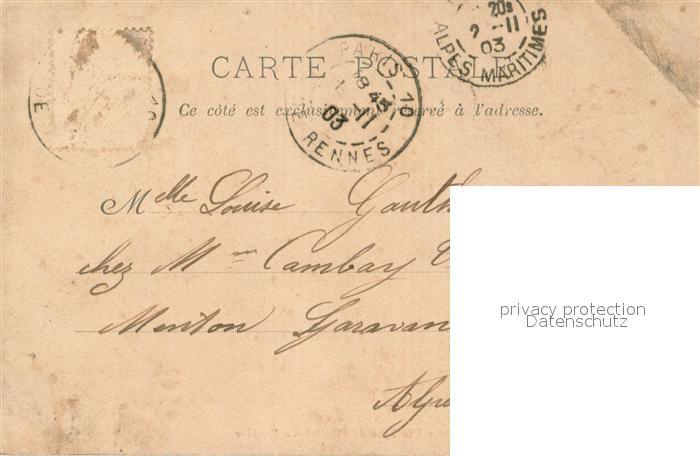 20s
2 -11
03
ALPES MARITIMES
PARIS
10
8 45
11
03
RENNES
CARTE POSTALE
Ce côté est exclusivement réservé à l'adresse.
Melle Louise Gauth
chez Mme Cambay
Menton Garavan
privacy protection
Datenschutz